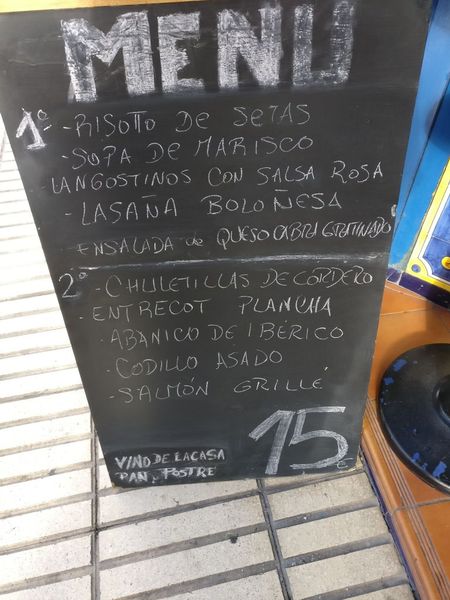 MENU
1º - RISOTTO DE SETAS
- SOPA DE MARISCO
- LANGOSTINOS CON SALSA ROSA
- LASAÑA BOLOÑESA
ENSALADA de QUESO CABRA GRATINADO
2º - CHULETILLAS DE CORDERO
- ENTRECOT PLANCHA
- ABANICO DE IBÉRICO
- CODILLO ASADO
- SALMÓN GRILLÉ
VINO DE LA CASA
PAN, POSTRE
15 €